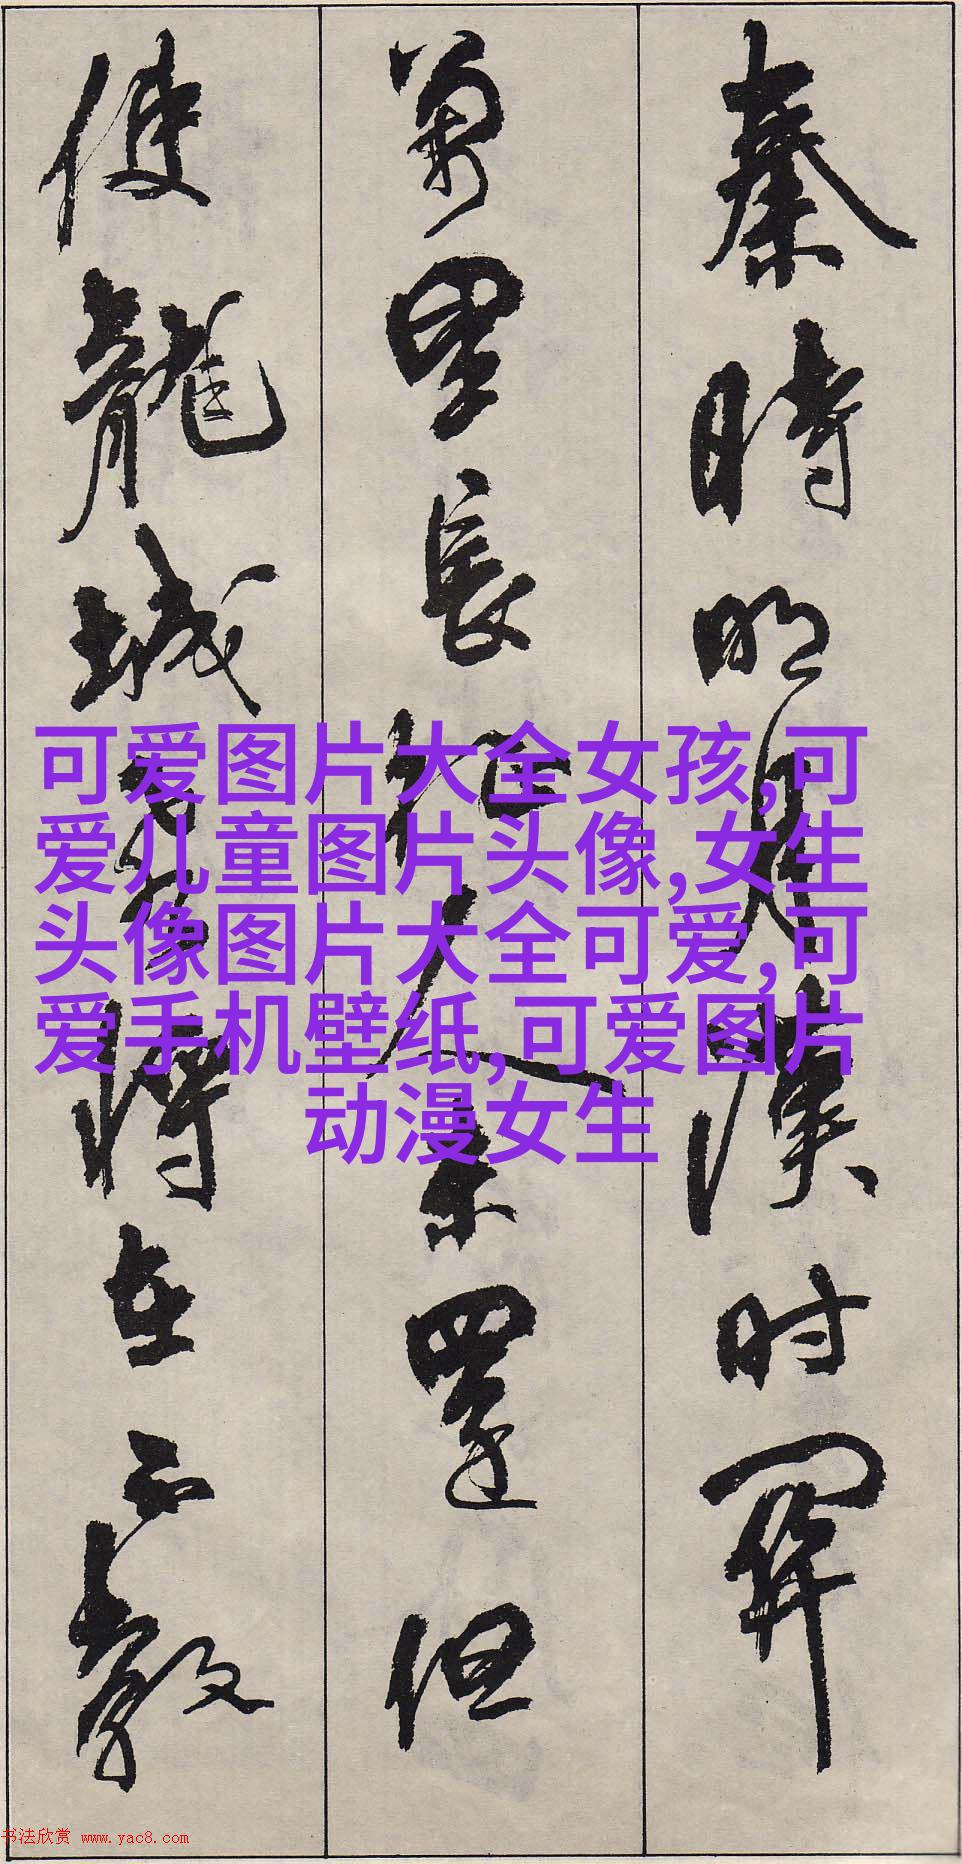 秦時明月漢时關
萬里長征人未還但
使龍城飛將在不教
可爱图片大全女孩,可
爱儿童图片头像,女生
头像图片大全可爱,可
爱手机壁纸,可爱图片
动漫女生
书法欣赏 www.yac8.com